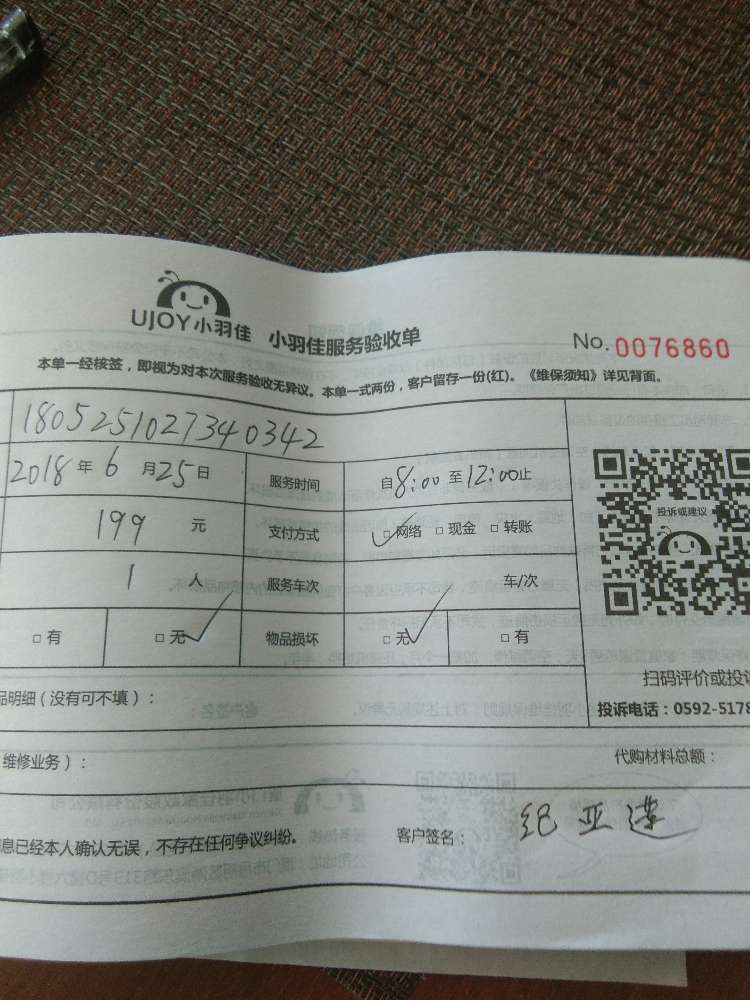 UJOY小羽佳 小羽佳服务验收单 No. 0076860
本单一经核签，即视为对本次服务验收无异议。本单一式两份，客户留存一份(红)。《维保须知》详见背面。
180525102734 0342
2018年6月25日 服务时间 自8:00至12:00止
投诉或建议
199 元 支付方式 ✓□网络 □现金 □转账
1 人 服务车次 车/次
□有 □无✓ 物品损坏 □无✓ □有
扫码评价或投诉
品明细（没有可不填）：
投诉电话：0592-5178
维修业务）： 代购材料总额：
息已经本人确认无误，不存在任何争议纠纷。 客户签名： 纪亚